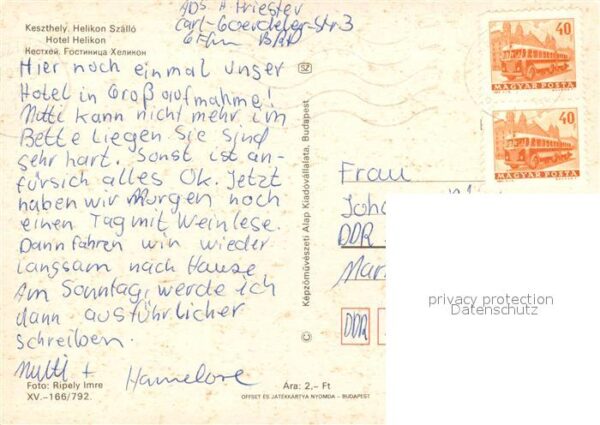 Keszthely. Helikon Szálló
Hotel Helikon
Кестхей. Гостиница Хеликон
Hier noch einmal unser
Hotel in Großaufnahme!
Mutti kann nicht mehr im
Bette liegen Sie sind
sehr hart. Sonst ist an-
fürsich alles Ok. Jetzt
haben wir Morgen noch
einen Tag mit Weinlese.
Dann fahren wir wieder
langsam nach Hause
Am Sonntag, werde ich
dann ausführlicher
schreiben.
Mutti + Hannelore
Foto: Ripely Imre
XV.–166/792.
Ára: 2,– Ft
OFFSET ÉS JÁTÉKKÁRTYA NYOMDA – BUDAPEST
Carl-Goerdeler-Str 3
SZ
Képzőművészeti Alap Kiadóvállalata, Budapest
40
MAGYAR POSTA
40
MAGYAR POSTA
Frau
DDR
DDR
privacy protection
Datenschutz